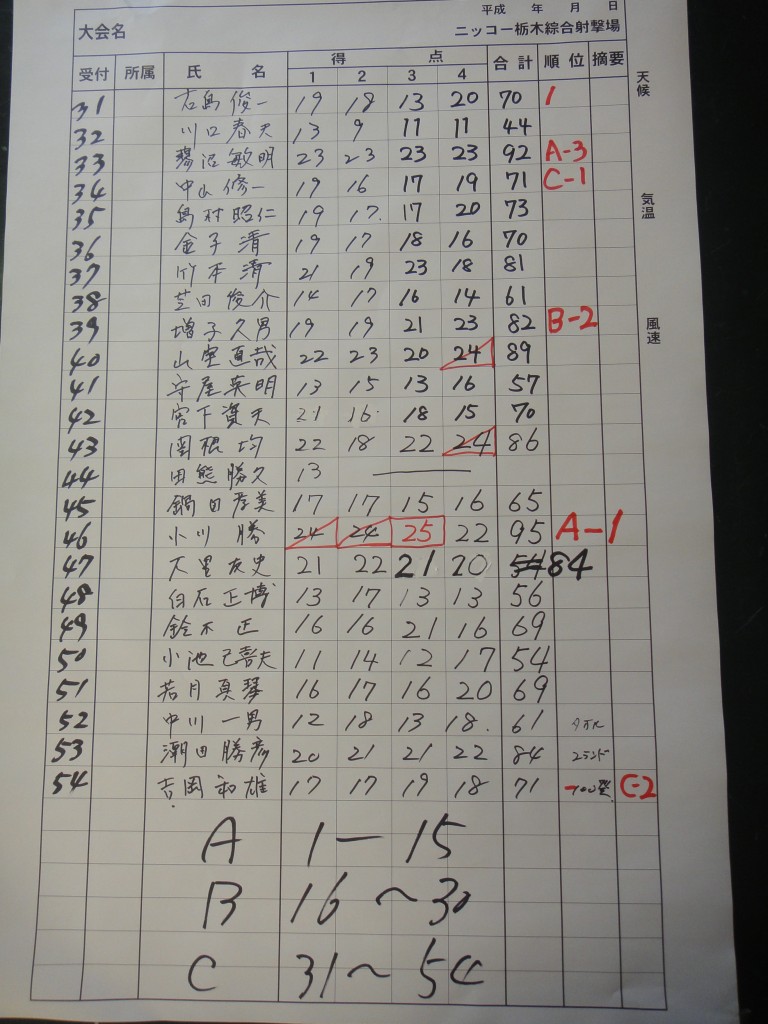 平成 年 月 日
大会名 ニッコー栃木綜合射撃場
受付 所属 氏 名 得 点 合計 順位 摘要 天候
1 2 3 4
31 石島俊一 19 18 13 20 70 1
32 川口春夫 13 9 11 11 44
33 蓼沼敏明 23 23 23 23 92 A-3
34 中山修一 19 16 17 19 71 C-1
気温
35 島村昭仁 19 17 17 20 73
36 金子清 19 17 18 16 70
37 竹本清 21 19 23 18 81
38 芝田俊介 14 17 16 14 61
39 増子久男 19 19 21 23 82 B-2
風速
40 山室直哉 22 23 20 24 89
41 守屋英明 13 15 13 16 57
42 宮下資夫 21 16 18 15 70
43 関根均 22 18 22 24 86
44 田熊勝久 13 ―
45 鍋田 美 17 17 15 16 65
46 小川 勝 24 24 25 22 95 A-1
47 大里友史 21 22 21 20 84
48 白石正博 13 17 13 13 56
49 鈴木正 16 16 21 16 69
50 小池己喜夫 11 14 12 17 54
51 若月真琴 16 17 16 20 69
52 中川一男 12 18 13 18 61
53 潮田勝彦 20 21 21 22 84 2ラウンド
54 吉岡和雄 17 17 19 18 71 C-2
A 1―15
B 16~30
C 31~54